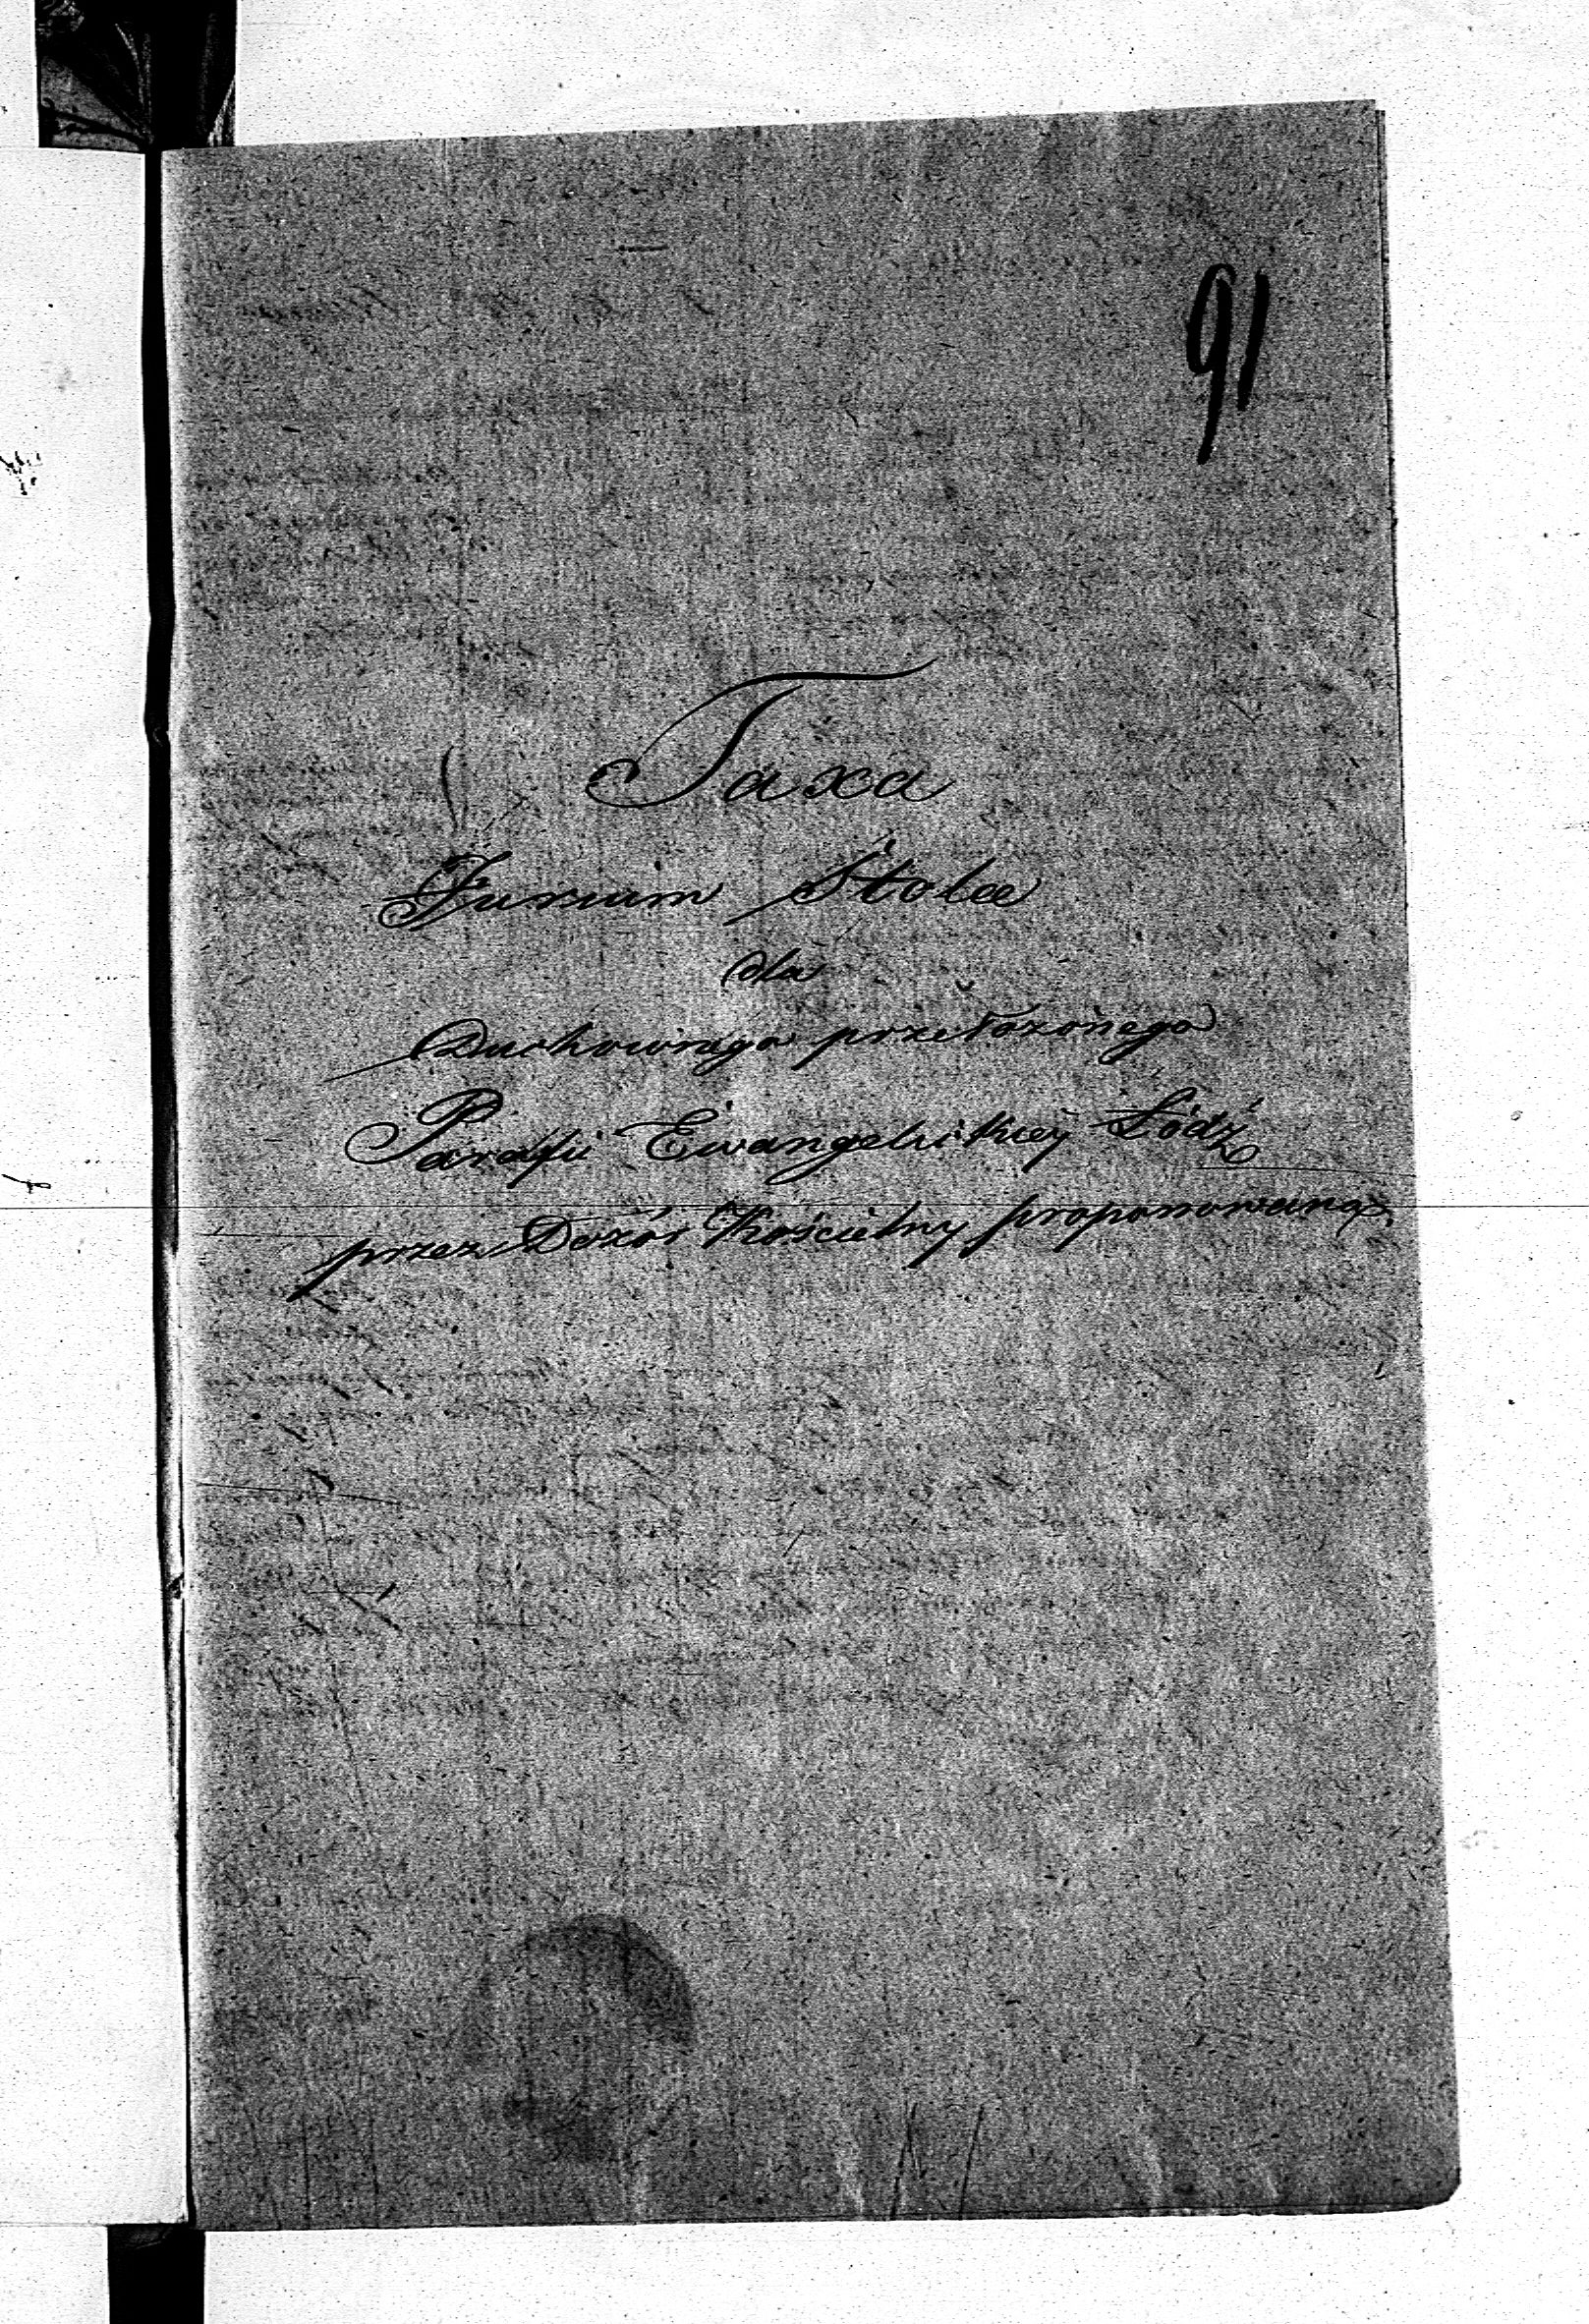 91
Taxa
Jurium Stolae
dla
Duchownego przełożonego
Parafii Ewangelickiey Łódź
przez Dozór Kościelny proponowana.